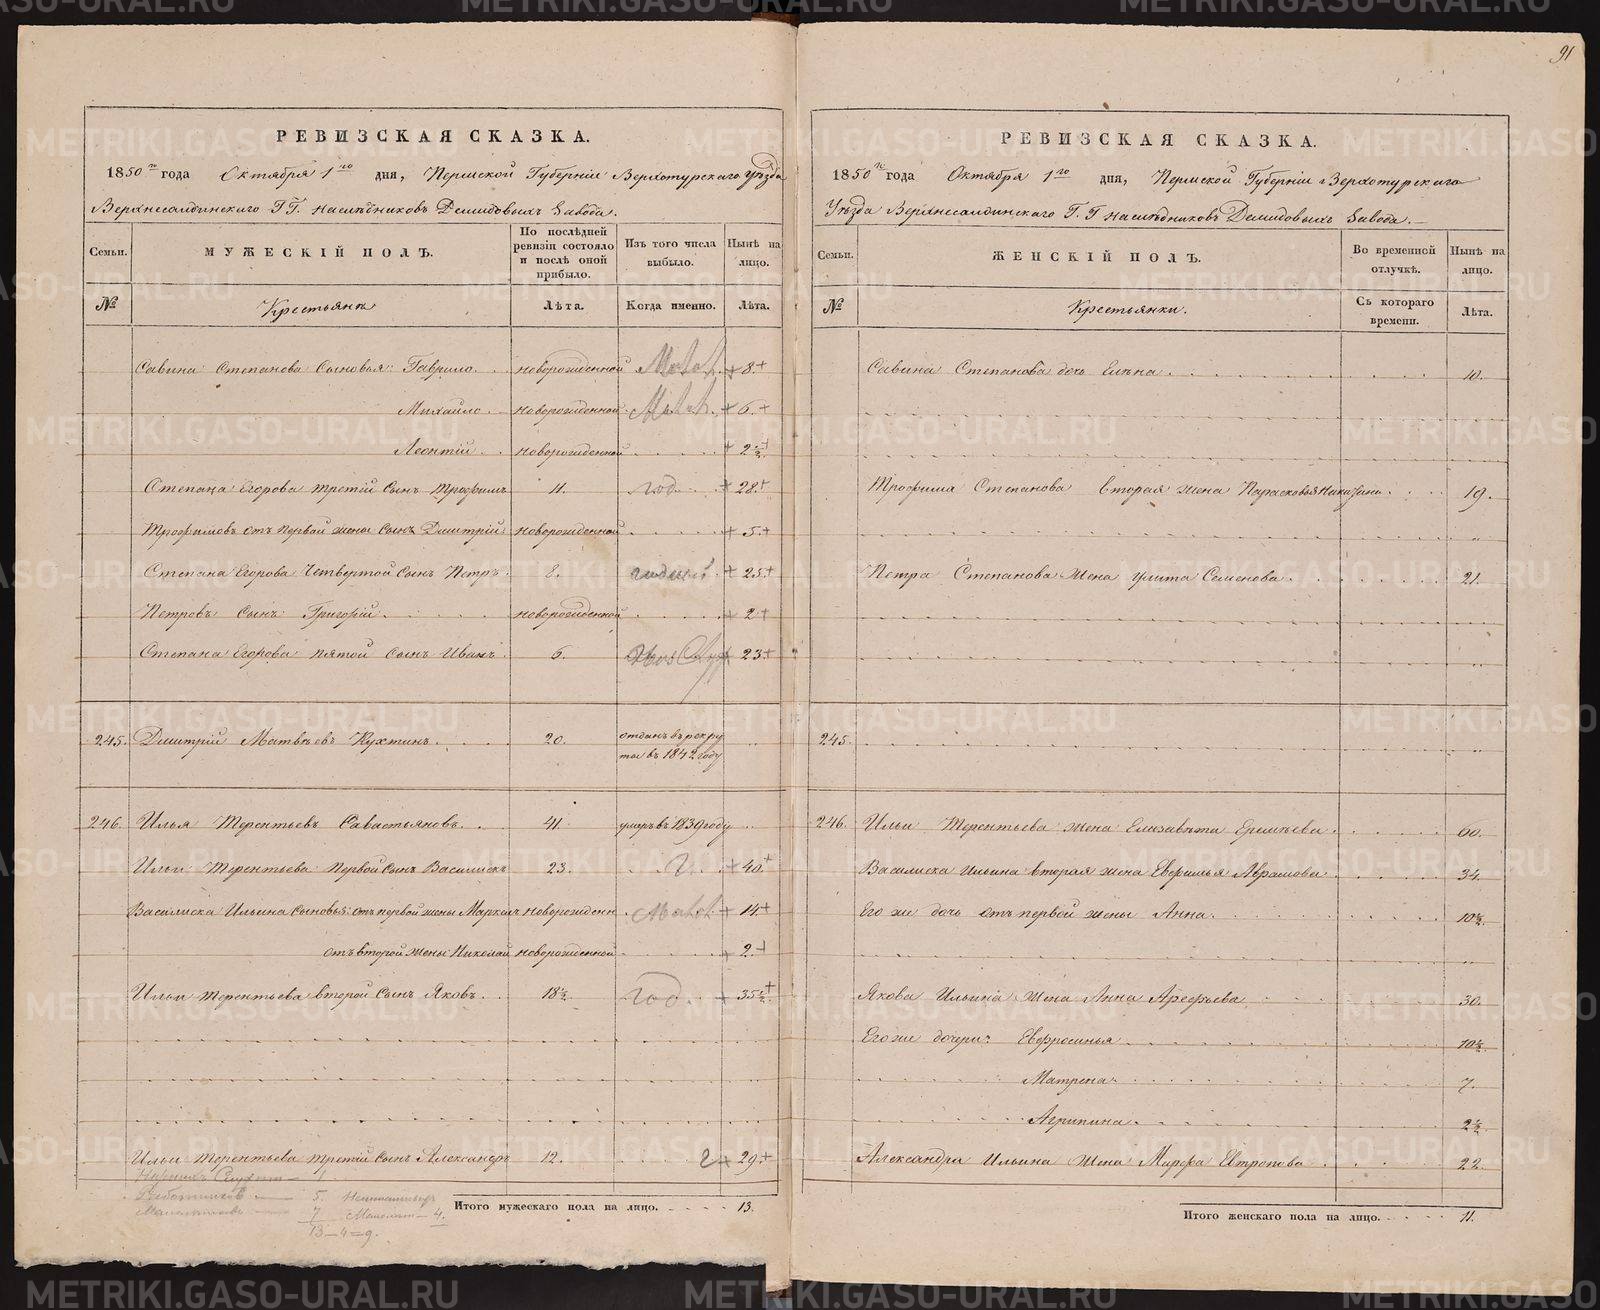 91
РЕВИЗСКАЯ СКАЗКА.
1850го года Октября 1го дня, Пермской Губерніи Верхотурскаго уѣзда
Верхнесалдинскаго Г.Г. наслѣдниковъ Демидовыхъ завода.
Семьи. МУЖЕСКІЙ ПОЛЪ. По послѣдней ревизіи состояло и послѣ оной прибыло. Изъ того числа выбыло. Нынѣ на лицо.
№ Крестьянъ Лѣта. Когда именно. Лѣта.
Савина Степанова Сыновья: Гаврило новорожденной 8.
Михайло новорожденной 6.
Леонтій новорожденной 2½
Степана Егорова третій Сынъ Трофимъ 11. год 28.
Трофимовъ отъ первой жены Сынъ Дмитрій новорожденной 5.
Степана Егорова Четвертой Сынъ Петръ 8. 25.
Петровъ Сынъ Григорій новорожденной 2
Степана Егорова пятой Сынъ Иванъ 6. 23.
245. Дмитрій Матвѣевъ Кухтинъ 20. отданъ въ рекру
ты въ 1842 году
246. Илья Терентьевъ Савастьяновъ 41. умеръ въ 1839 году
Ильи Терентьева первой Сынъ Василискъ 23. 40.
Василиска Ильина Сыновья: отъ первой жены Маркелъ новорожденн 14
отъ второй жены Николай новорожденной 2
Ильи Терентьева второй Сынъ Яковъ 18½ год 35½
Ильи Терентьева третій Сынъ Александръ 12. 29
Работниковъ 5.
7 4.
13-4=9.
Итого мужескаго пола на лицо. 13.
РЕВИЗСКАЯ СКАЗКА.
1850го года Октября 1го дня, Пермской Губерніи Верхотурскаго
Уѣзда Верхнесалдинскаго Г.Г наслѣдниковъ Демидовыхъ завода.
Семьи. ЖЕНСКІЙ ПОЛЪ. Во временной отлучкѣ. Нынѣ на лицо.
№ Крестьянки. Съ котораго времени. Лѣта.
Савина Степанова дочь Елѣна 10.
Трофима Степанова вторая жена Парасковья 19.
Петра Степанова жена Улита Семенова 21.
245.
246. Ильи Терентьева жена Елизавѣта Ермѣева 60.
Василиска Ильина вторая жена Евфимья Абрамова 34
Его же дочь отъ первой жены Анна 10½
Якова Ильина жена Анна Арефьева 30.
Его же дочери: Евфросинья 10½
Матрена 7.
Агрипина 2½
Александра Ильина жена Марфа Евтропова 22.
Итого женскаго пола на лицо. 11.
METRIKI.GASO-URAL.RU